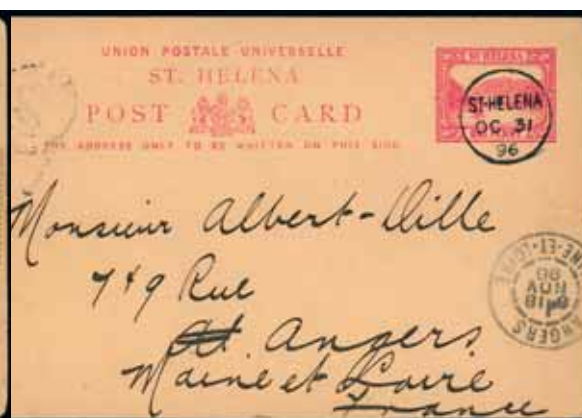 UNION POSTALE UNIVERSELLE
ST. HELENA
POST CARD
THE ADDRESS ONLY TO BE WRITTEN ON THIS SIDE
ST HELENA
ST-HELENA
OC 31
96
Monsieur Albert-Dille
749 Rue
Angers
Maine et Loire
France
ANGERS
18
NOV
96
NE-ET-LOIRE